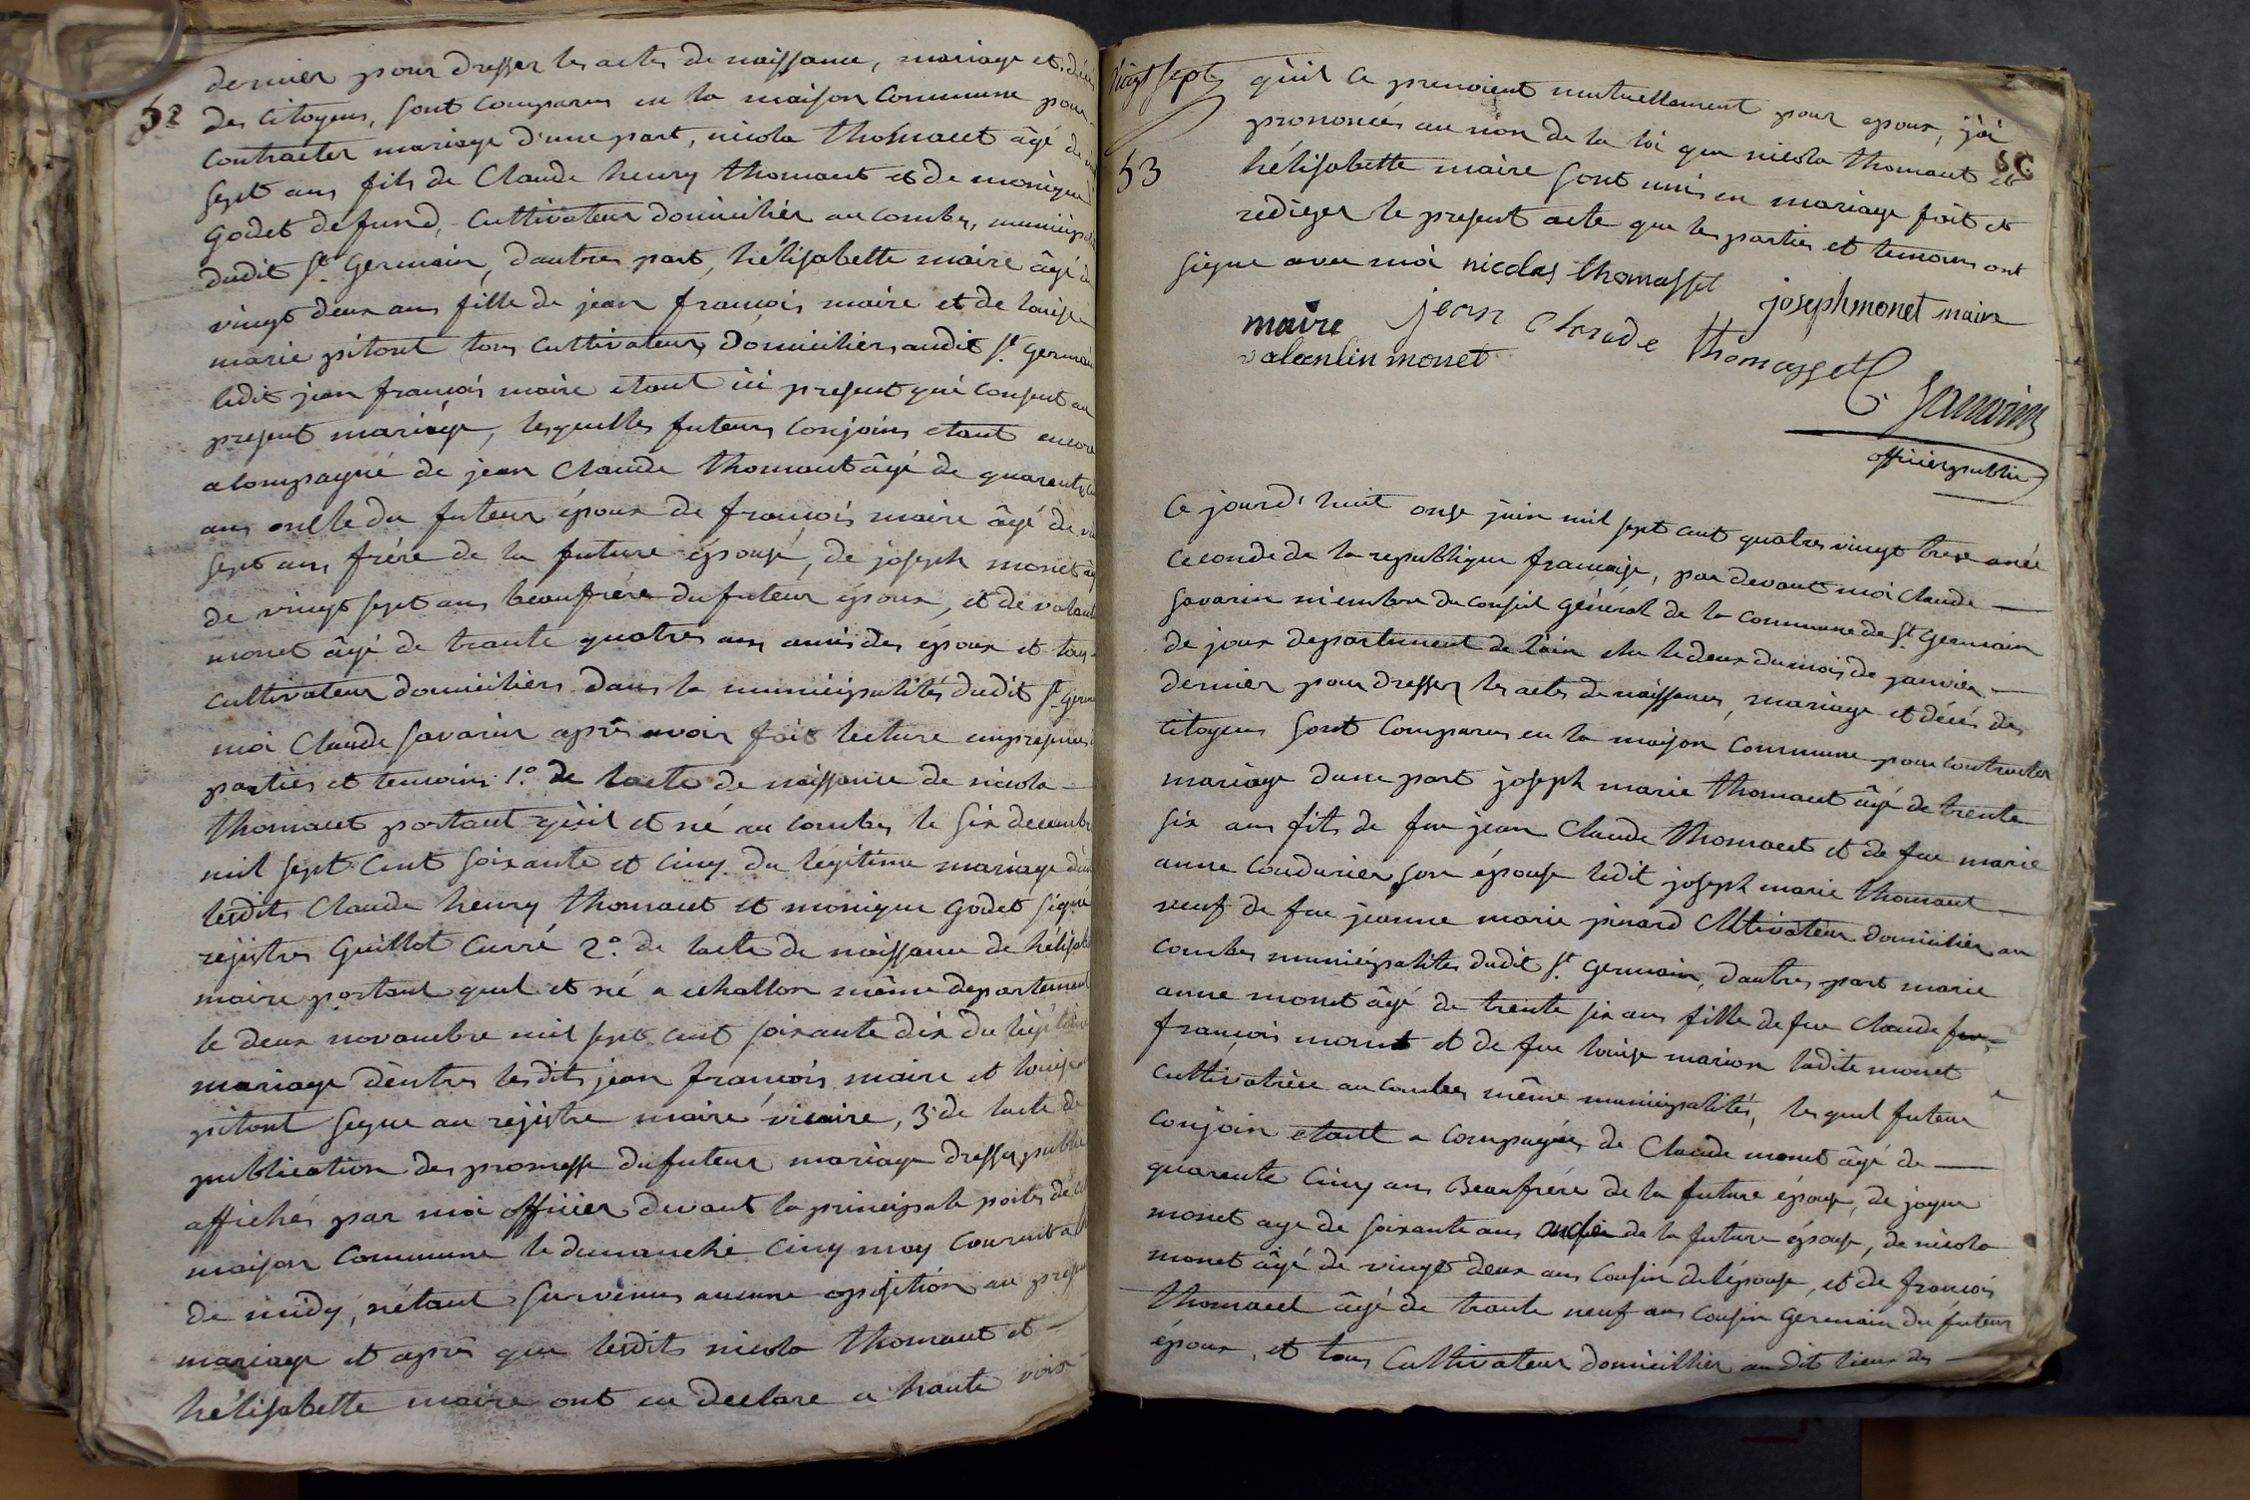 52
dernier pour dresser les actes de naissance, mariage et décé
des citoyens, sont comparus en la maison commune pour
contracter mariage d'une part, nicola thomacet âgé de
sept ans fils de Claude henry thomacet et de monique
godet defund, cultivateur domiciliér au combes, municipa
dudit St. Germain, dautres part, hélisabette maire âgé de
vingt deux ans fille de jean françois maire et de louise
marie pitont tous cultivateurs domiciliers audit St. Germain
ledit jean françois maire etant ici present qui consent au
present mariage, lesquelles futeurs conjoins etant encore
acompagné de jean Claude thomacet âgé de quarente
ans oncle du futeur époux de françois maire âgé de
sept ans frère de la future épouse, de joseph monet âg
de vingt sept ans beaufrére du futeur époux, et de valant
monet âgé de trante quatres ans amis des époux et tous
cultivateur domiciliers dans la municipalités dudit St. Germ
moi Claude Savarin aprês avoir fait lecture en presence
parties et temoins 1.° de lacte de naissance de nicola
thomacet portant qu'il et né au combes le six decembre
mil sept cent soixante et cinq du légitime mariage d'en
lesdits Claude henry thomacet et monique godet signé
rejistres Guillot curré 2.° de lacte de naissance de hélisab
maire portant quel et né a echallon même departement
le deux novambre mil sept cent soixante dix du légitime
mariage d'entres lesdits jean françois maire et louise
pitont segne au rejistre maire vicaire, 3° de lacte de
publication des promesse du futeur mariage dresser publié
affichés par moi officier devant la principale porte de
maison commune le dimanche cinq may courent a
de midy, n'étant survenus aucune oposition au presen
mariage et aprês que lesdits nicola thomacet et
hélisabette maire ont eu declare a haute voix
vingt sept
53
qu'il ce prenoient mutuellement pour epoux, j'ai
prononcés au non de la loi que nicola thomacet et
hélisabette maire sont unis en mariage fait et
rediger le present acte que les parties et temoins ont
signe avec moi nicolas thomasset
joseph monet maire
maire jean claude thomasset
valantin monet
Savarin
officier public
Ce jourd'huit onze juin mil sept cent quatres vingt treze anée
seconde de la republique françaisse, par devant moi Claude
Savarin membre du conseil général de la commune de St. Germain
de joux departement de l'ain elu le deux du mois de janvier
dernier pour dresser les actes de naissances, mariage et décés des
citoyens sont comparus en la maison commune pour contracter
mariage dune part joseph marie thomacet âgé de trente
six ans fils de feu jean Claude thomacet et de feu marie
anne coudurier son épouse ledit joseph marie thomacet
veuf de feu jeanne marie pinard cultivateur domicilier au
combes municipalités dudit St. Germain, dautres part marie
anne monet âgé de trente six ans fille de feu Claude
françois monet et de feu louise marion ladite monet
cultivatrice au combes même municipalités, lesquel futeur
conjoin etant acompagnés de Claude monet âgé de
quarente cinq ans Beaufrére de la future épouse, de
monet age de soixante ans de la future épouse, de nicola
monet âgé de vingt deux ans cousin de lépouse, et de françois
thomacet âgé de trante neuf ans cousin germain du futeur
époux, et tous cultivateur domicillier au dit lieux des